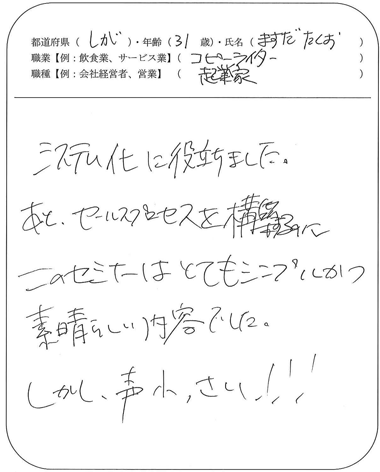 都道府県（しが）・年齢（31 歳）・氏名（ますだ たくお）
職業【例：飲食業、サービス業】（コピーライター）
職種【例：会社経営者、営業】（起業家）
システム化に役立ちました。
あと、セールスプロセスを構築するのに
このセミナーはとてもシンプルかつ
素晴らしい内容でした。
しかし、声小さい！！！